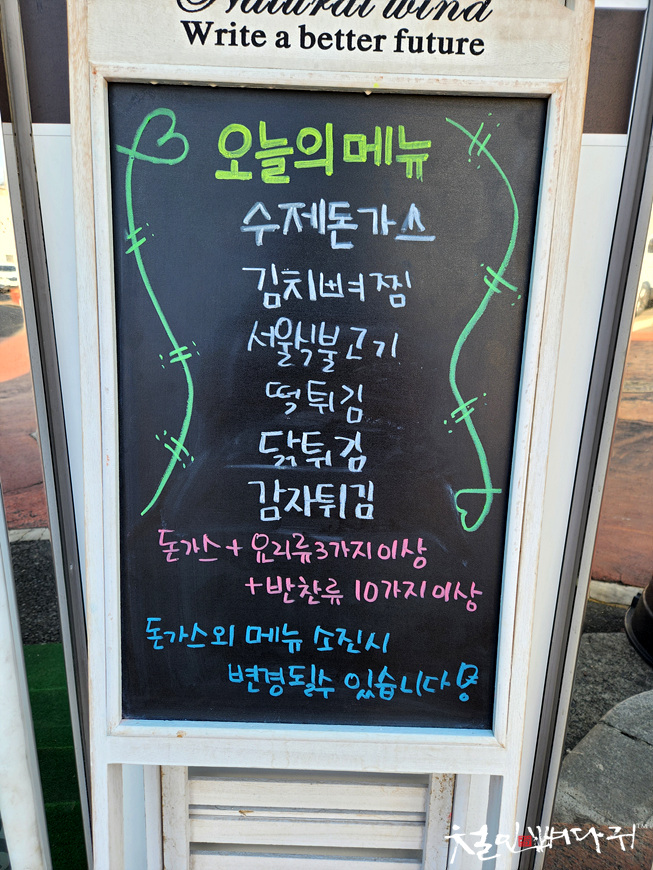 Natural wind
Write a better future
오늘의 메뉴
수제돈가스
김치뼈찜
서울식불고기
떡튀김
닭튀김
감자튀김
돈가스 + 요리류 3가지이상
+ 반찬류 10가지이상
돈가스외 메뉴 소진시
변경될수 있습니다!